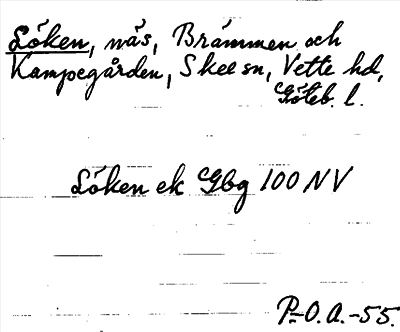 Löken, näs, Brämmen och
Kampegården, Skee sn, Vette hd,
Göteb. l.
Löken ek Gbg 100 NV
P.-O.A.-55.